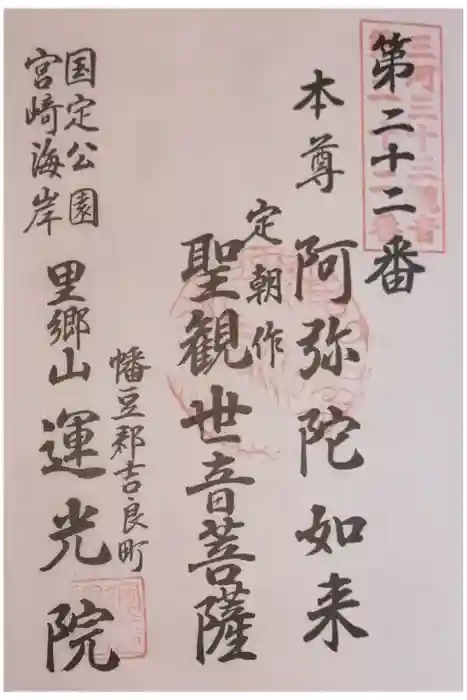 三河三十三観音
第二十二番
本尊 阿弥陀如来
定朝作
聖観世音菩薩
幡豆郡吉良町
国定公園
宮崎海岸
里郷山 運光院